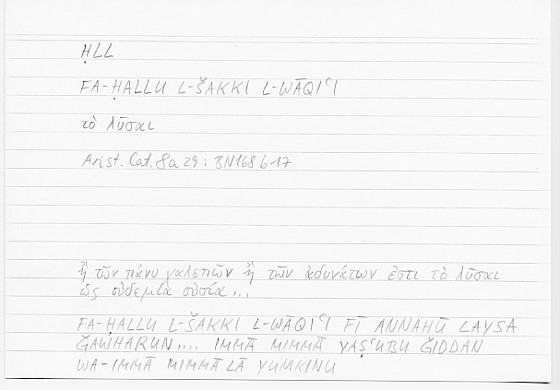 ḤLL
FA-ḤALLU L-ŠAKKI L-WĀQIʿI
τὸ λῦσαι
Arist. Cat. 8a29: BN168b17
ἢ τῶν πάνυ χαλεπῶν ἢ τῶν ἀδυνάτων ἐστὶ τὸ λῦσαι
ὡς οὐδεμία οὐσία...
FA-ḤALLU L-ŠAKKI L-WĀQIʿI FĪ ANNAHŪ LAYSA
ǦAWHARUN.... IMMĀ MIMMĀ YAṢʿUBU ǦIDDAN
WA-IMMĀ MIMMĀ LĀ YUMKINU